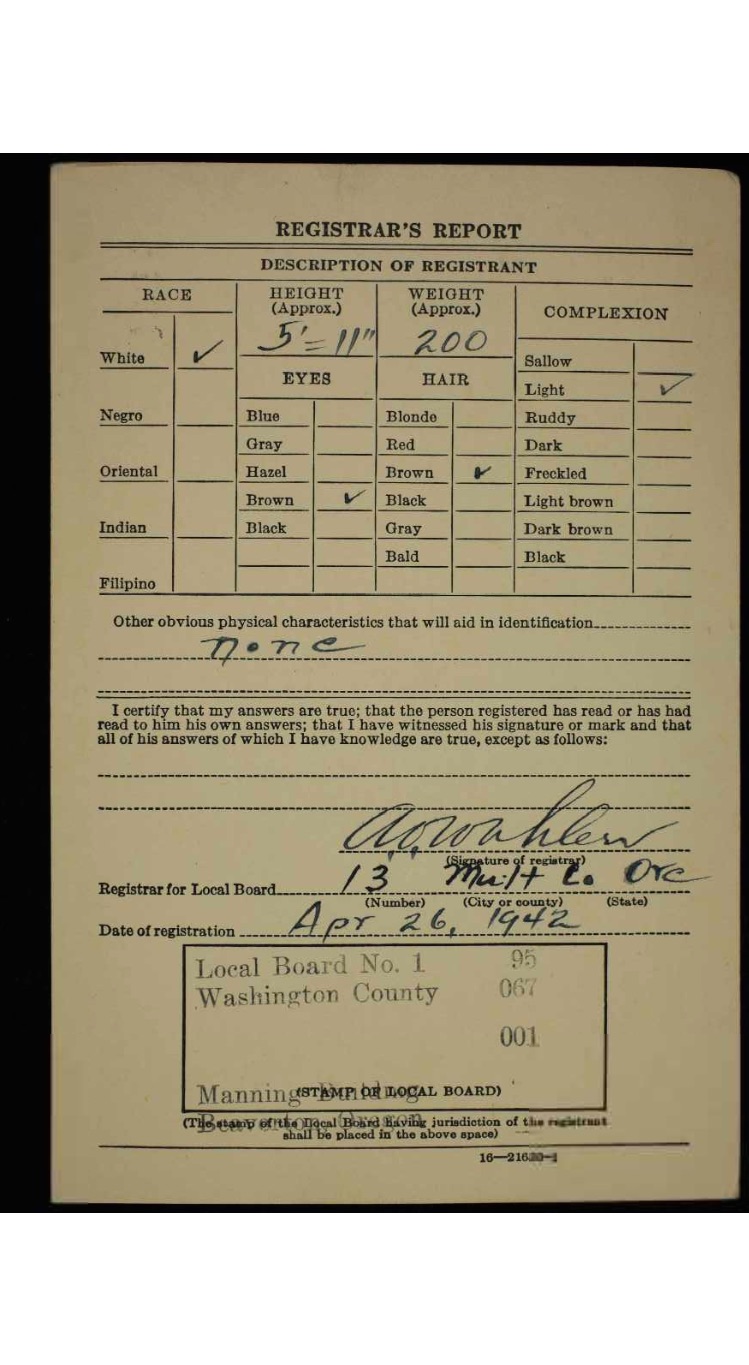 REGISTRAR'S REPORT
DESCRIPTION OF REGISTRANT
RACE
HEIGHT
(Approx.)
WEIGHT
(Approx.)
COMPLEXION
5'=11"
200
White ✓
Sallow
EYES
HAIR
Light ✓
Negro
Blue
Blonde
Ruddy
Gray
Red
Dark
Oriental
Hazel
Brown ✓
Freckled
Brown ✓
Black
Light brown
Indian
Black
Gray
Dark brown
Bald
Black
Filipino
Other obvious physical characteristics that will aid in identification
none
I certify that my answers are true; that the person registered has read or has had
read to him his own answers; that I have witnessed his signature or mark and that
all of his answers of which I have knowledge are true, except as follows:
(Signature of registrar)
Registrar for Local Board 13 Mult Co. Ore
(Number) (City or county) (State)
Date of registration Apr 26, 1942
Local Board No. 1 95
Washington County 067
001
Manning Building
(STAMP OF LOCAL BOARD)
Beaverton, Oregon
(The stamp of the Local Board having jurisdiction of the registrant
shall be placed in the above space)